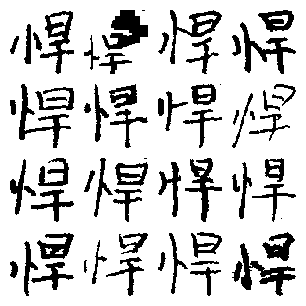 悍悍悍悍
悍悍悍悍
悍悍悍悍
悍悍悍悍